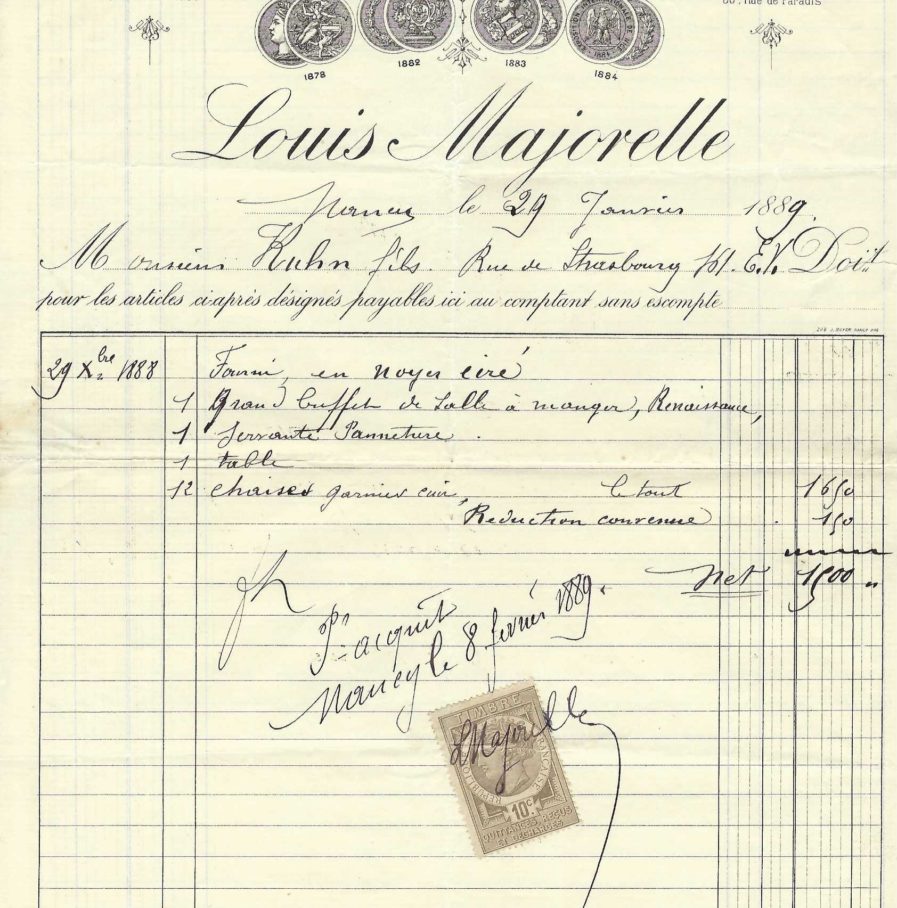 60, rue de Paradis
1878 1882 1883 1884
Louis Majorelle
Nancy le 29 Janvier 1889.
Monsieur Kuhn fils. Rue de Strasbourg E.V. Doit
pour les articles ci-après désignés payables ici au comptant sans escompte
29 Xbre 1888 Fourni, en noyer ciré
1 Grand buffet de Salle à manger, Renaissance,
1 Servante Panneture.
1 table
12 chaises garnies cuir, le tout 1650
Reduction convenue 150
Net 1500 "
Pr acquit
Nancy le 8 février 1889.
TIMBRE
LMajorelle
RÉPUBLIQUE FRANÇAISE
10c
QUITTANCES REÇUS
ET DÉCHARGES